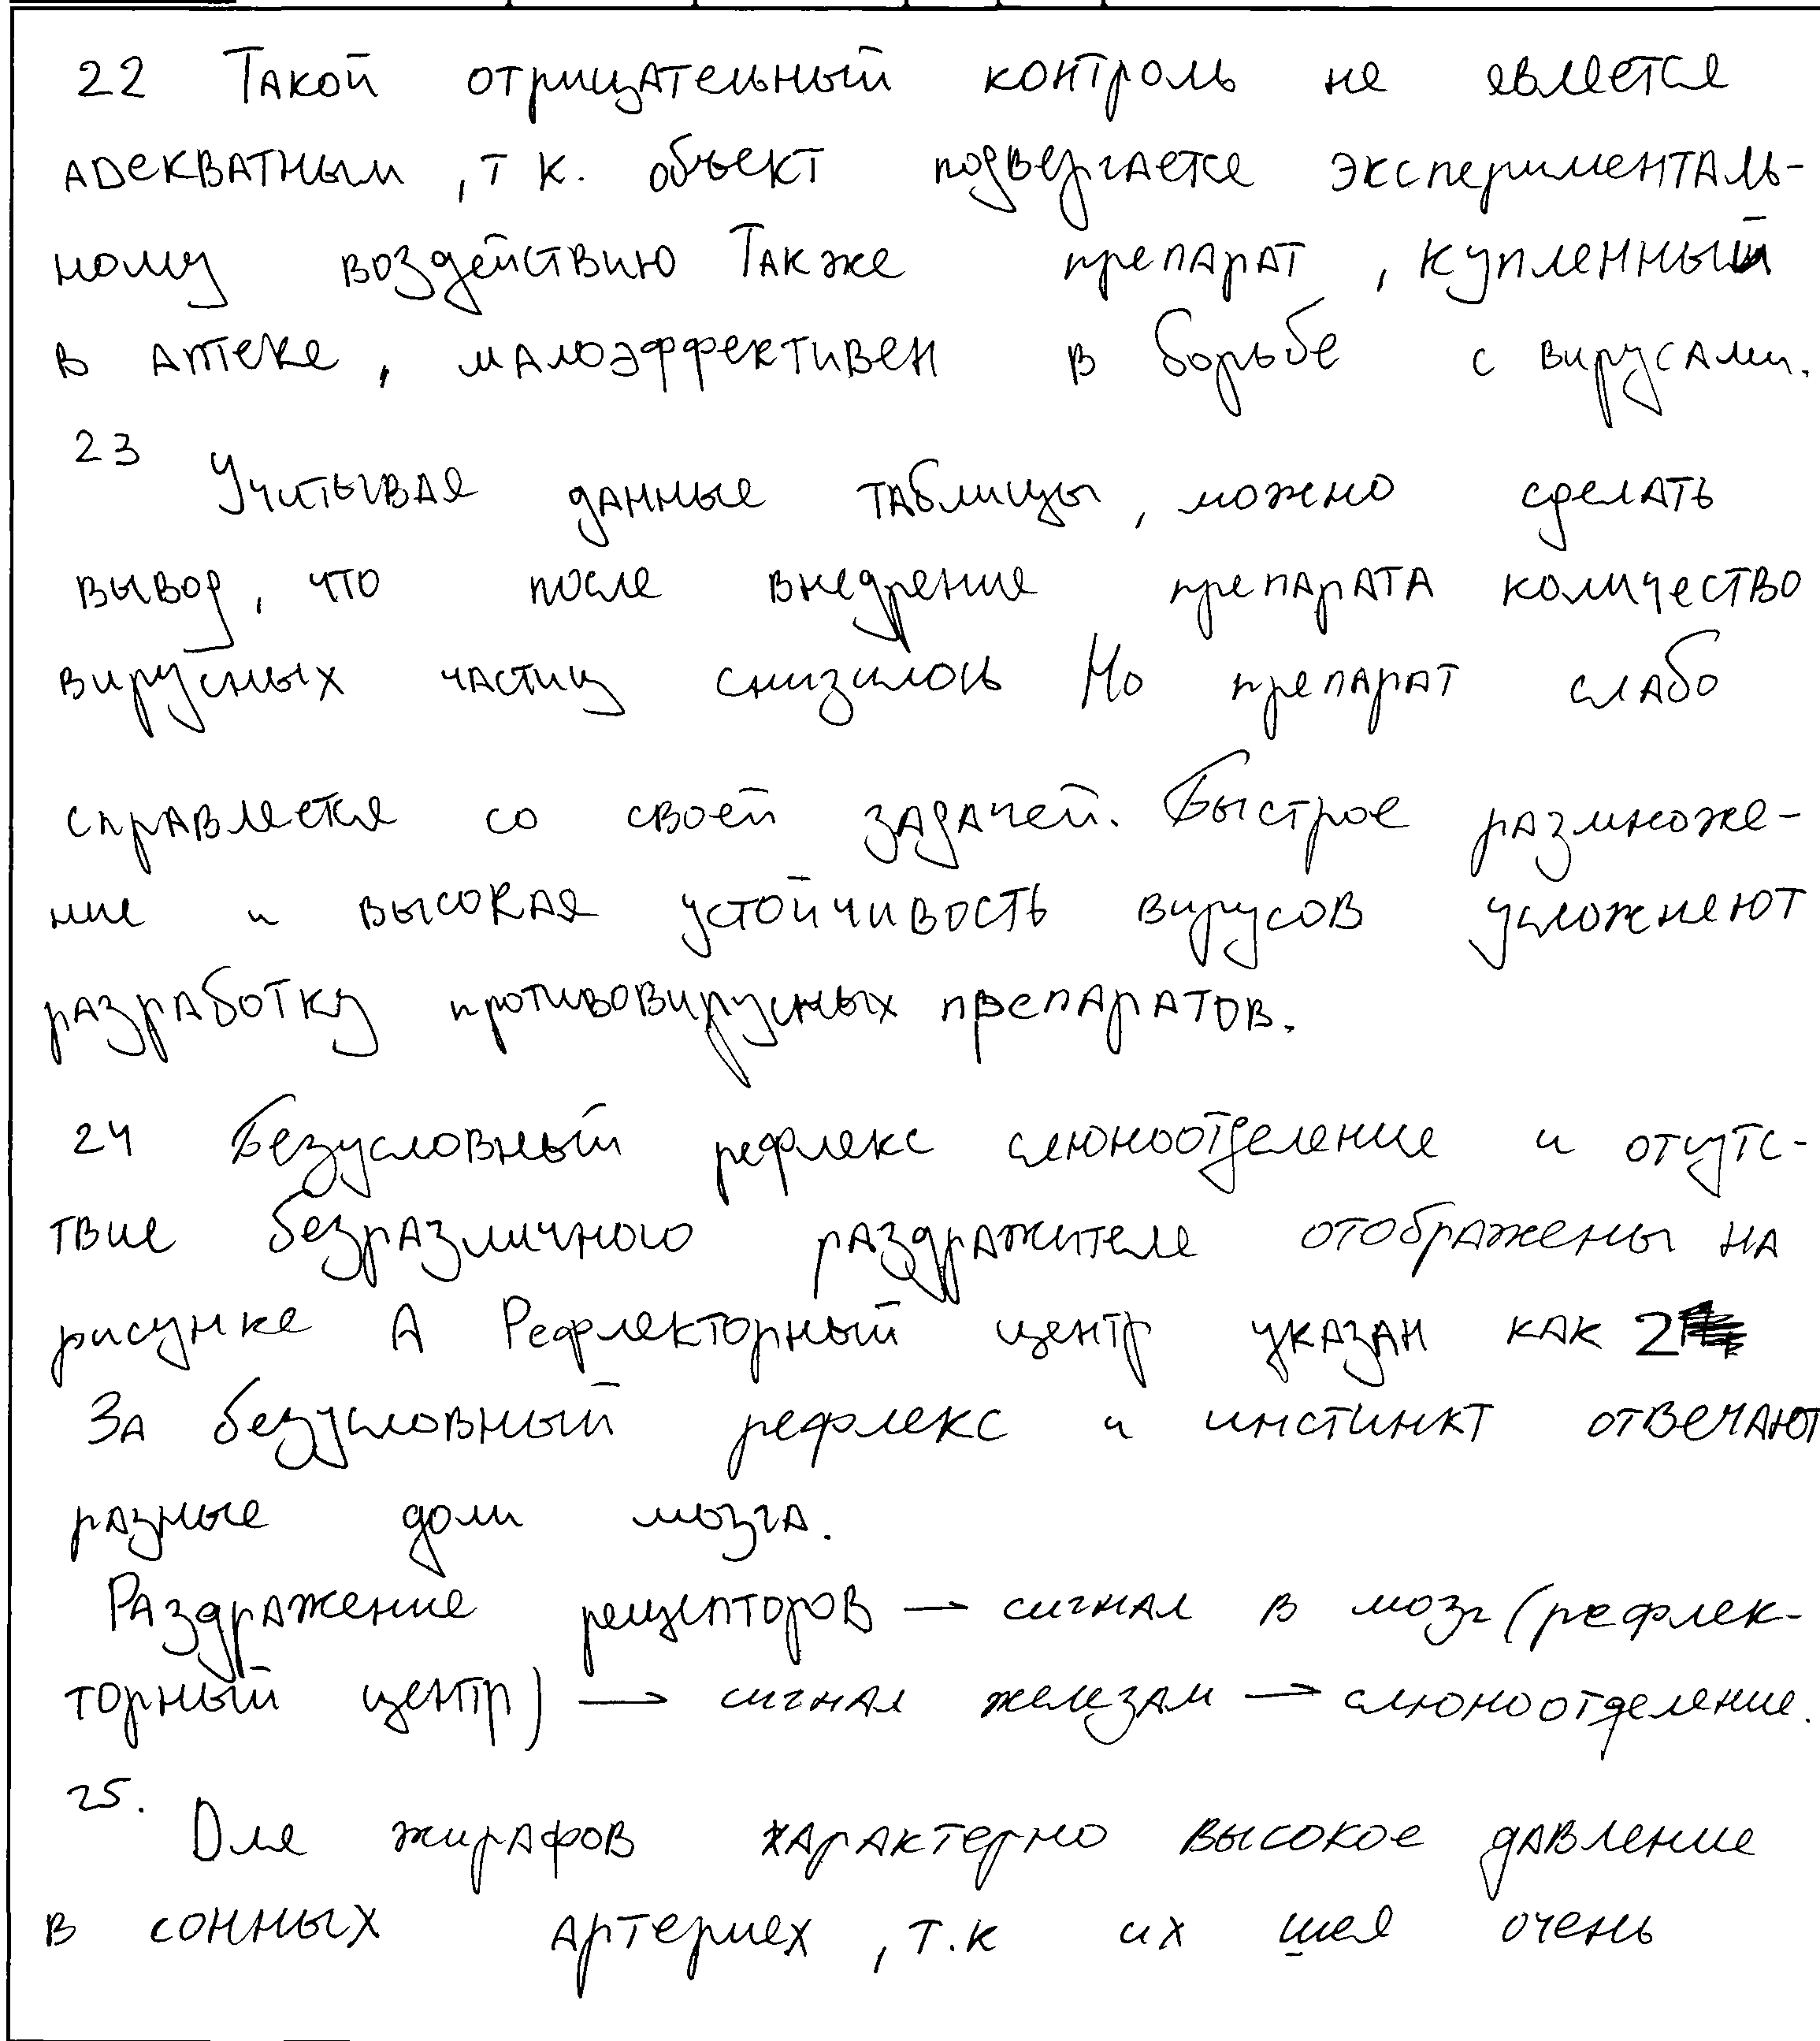 22 Такой отрицательный контроль не является
адекватным, т к. объект подвергается эксперименталь-
ному воздействию Также препарат, купленный
в аптеке, малоэффективен в борьбе с вирусами.
23
Учитывая данные таблицы, можно сделать
вывод, что после внедрения препарата количество
вирусных частиц снизилось Но препарат слабо
справляется со своей задачей. Быстрое размноже-
ние и высокая устойчивость вирусов усложняют
разработку противовирусных препаратов.
24 Безусловный рефлекс слюноотделение и отсутс-
твие безразличного раздражителя отображены на
рисунке А Рефлекторный центр указан как 2
За безусловный рефлекс и инстинкт отвечают
разные доли мозга.
Раздражение рецепторов → сигнал в мозг (рефлек-
торный центр) → сигнал железам → слюноотделение.
25.
Для жирафов характерно высокое давление
в сонных артериях, т.к их шея очень